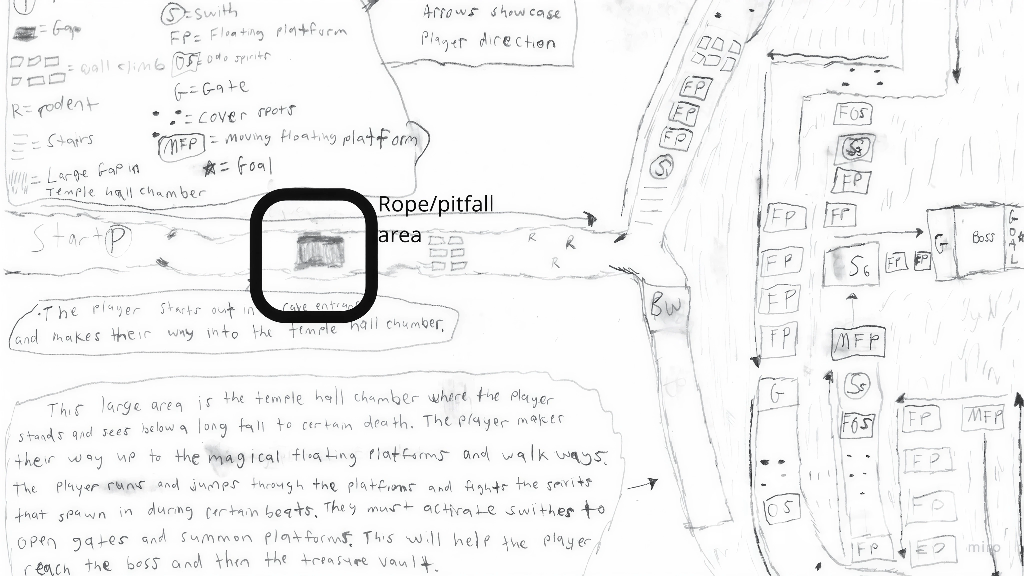 S = Swith
= Gap
FP = Floating platform
= wall climb
OS = Odo spirits
G = Gate
R = rodent
= cover spots
= Stairs
MFP = Moving floating platform
= Large Gap in
Temple hall chamber
= Goal
Arrows showcase
Player direction
Start P
Rope/pitfall
area
R R
R
BW
• The player starts out in cave entran
and makes their way into the temple hall chamber.
This large area is the temple hall chamber where the player
stands and sees below a long fall to certain death. The player makes
their way up to the magical floating platforms and walk ways.
The player runs and jumps through the platfroms and fights the spirits
that spawn in during certain beats. They must activate swithes to
open gates and summon platforms. This will help the player
reach the boss and then the treasure vault.
FP
FP
FP
S
FOS
FP
FP FP
FP
FP
FP
S6 FP FP
G Boss GOAL
MFP
G
OS
S5
FOS
FP
FP MFP
FP
FP
miro